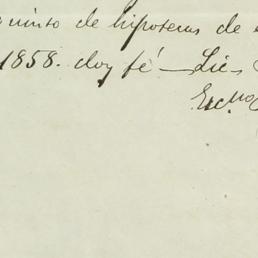 quinto de hipotecas de e
1858. doy fé — Lic.